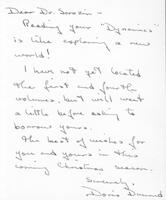 Dear Dr. Sorokin -
Reading your "Dynamics"
is like exploring a new
world!
I have not yet located
the first and fourth
volumes, but will wait
a little before asking to
borrow yours.
The best of wishes for
you and yours in this
coming Christmas season.
Sincerely,
Doris